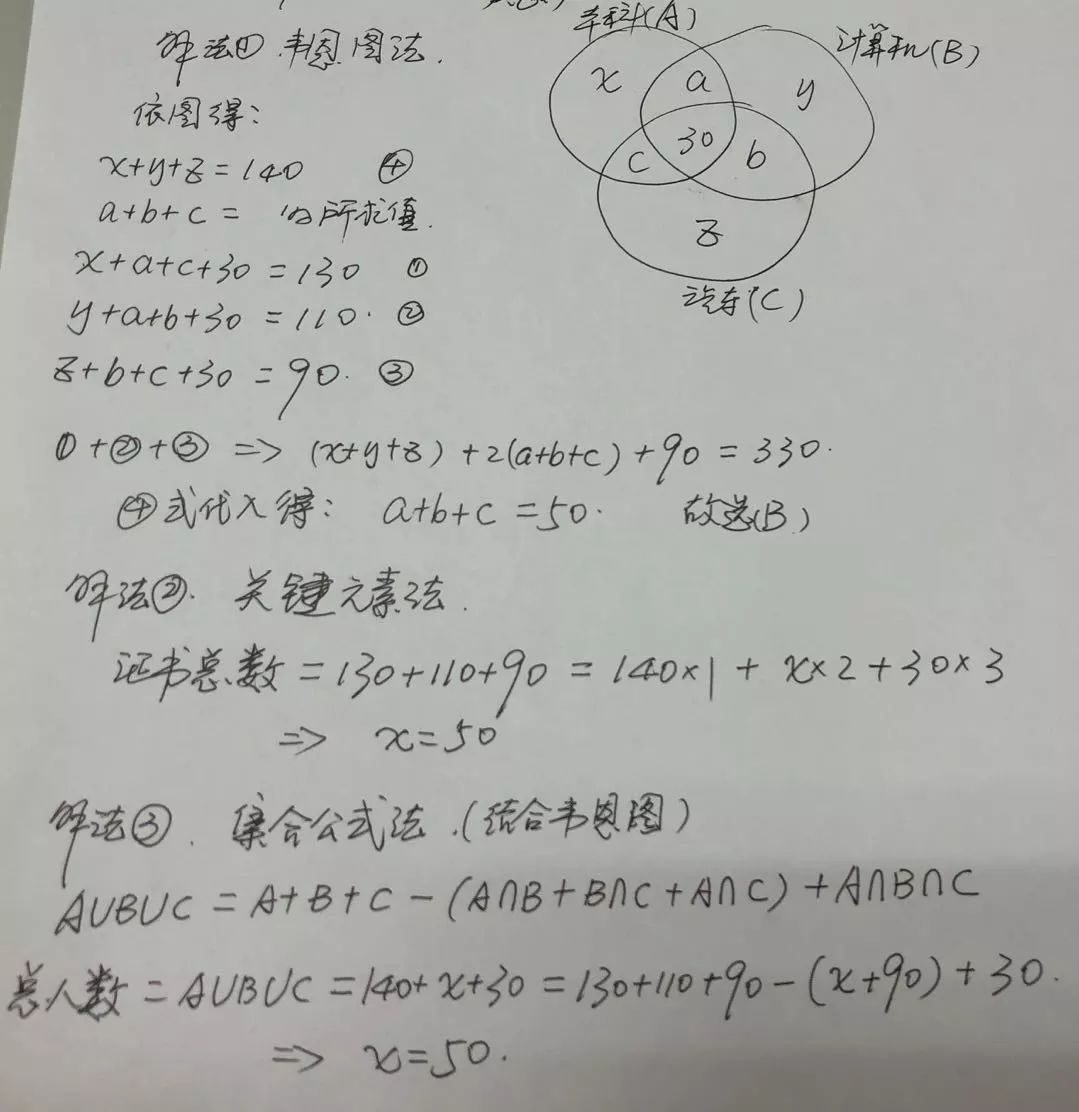 本科(A)
计算机(B)
x a y
c 30 b
z
汽车(C)
解法① 韦恩图法.
依图得:
x+y+z=140 ④
a+b+c= 为所求值.
x+a+c+30=130 ①
y+a+b+30=110. ②
z+b+c+30=90. ③
①+②+③ => (x+y+z)+2(a+b+c)+90=330.
④式代入得: a+b+c=50. 故选(B)
解法②. 关键元素法.
证书总数=130+110+90=140×1+x×2+30×3
=> x=50
解法③. 集合公式法.(结合韦恩图)
A∪B∪C=A+B+C-(A∩B+B∩C+A∩C)+A∩B∩C
总人数=A∪B∪C=140+x+30=130+110+90-(x+90)+30.
=> x=50.